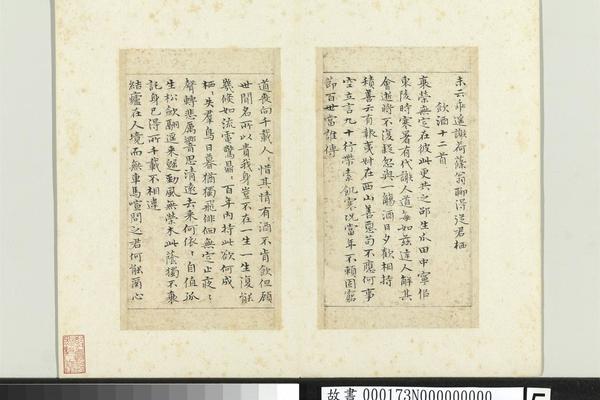 未云乖遥謝荷蓧翁聊得從君栖
飲酒十二首
衰榮無定在彼此更共之邵生瓜田中寧似
東陵時寒暑有代謝人道每如茲達人解其
會逝將不復疑忽與一觴酒日夕歡相持
積善云有報夷叔在西山善惡苟不應何事
空立言九十行帶索飢寒況當年不賴固窮
節百世當誰傳
道喪向千載人〻惜其情有酒不肯飲但顧
世間名所以貴我身豈不在一生一生復能
幾倏如流電驚鼎〻百年內持此欲何成
栖〻失羣鳥日暮猶獨飛徘徊無定止夜〻
聲轉悲厲響思清遠去來何依〻自值孤
生松斂翮遥來歸勁風無榮木此蔭獨不衰
託身已得所千載不相違
結廬在人境而無車馬喧問之君何能爾心
故書 000173N000000000